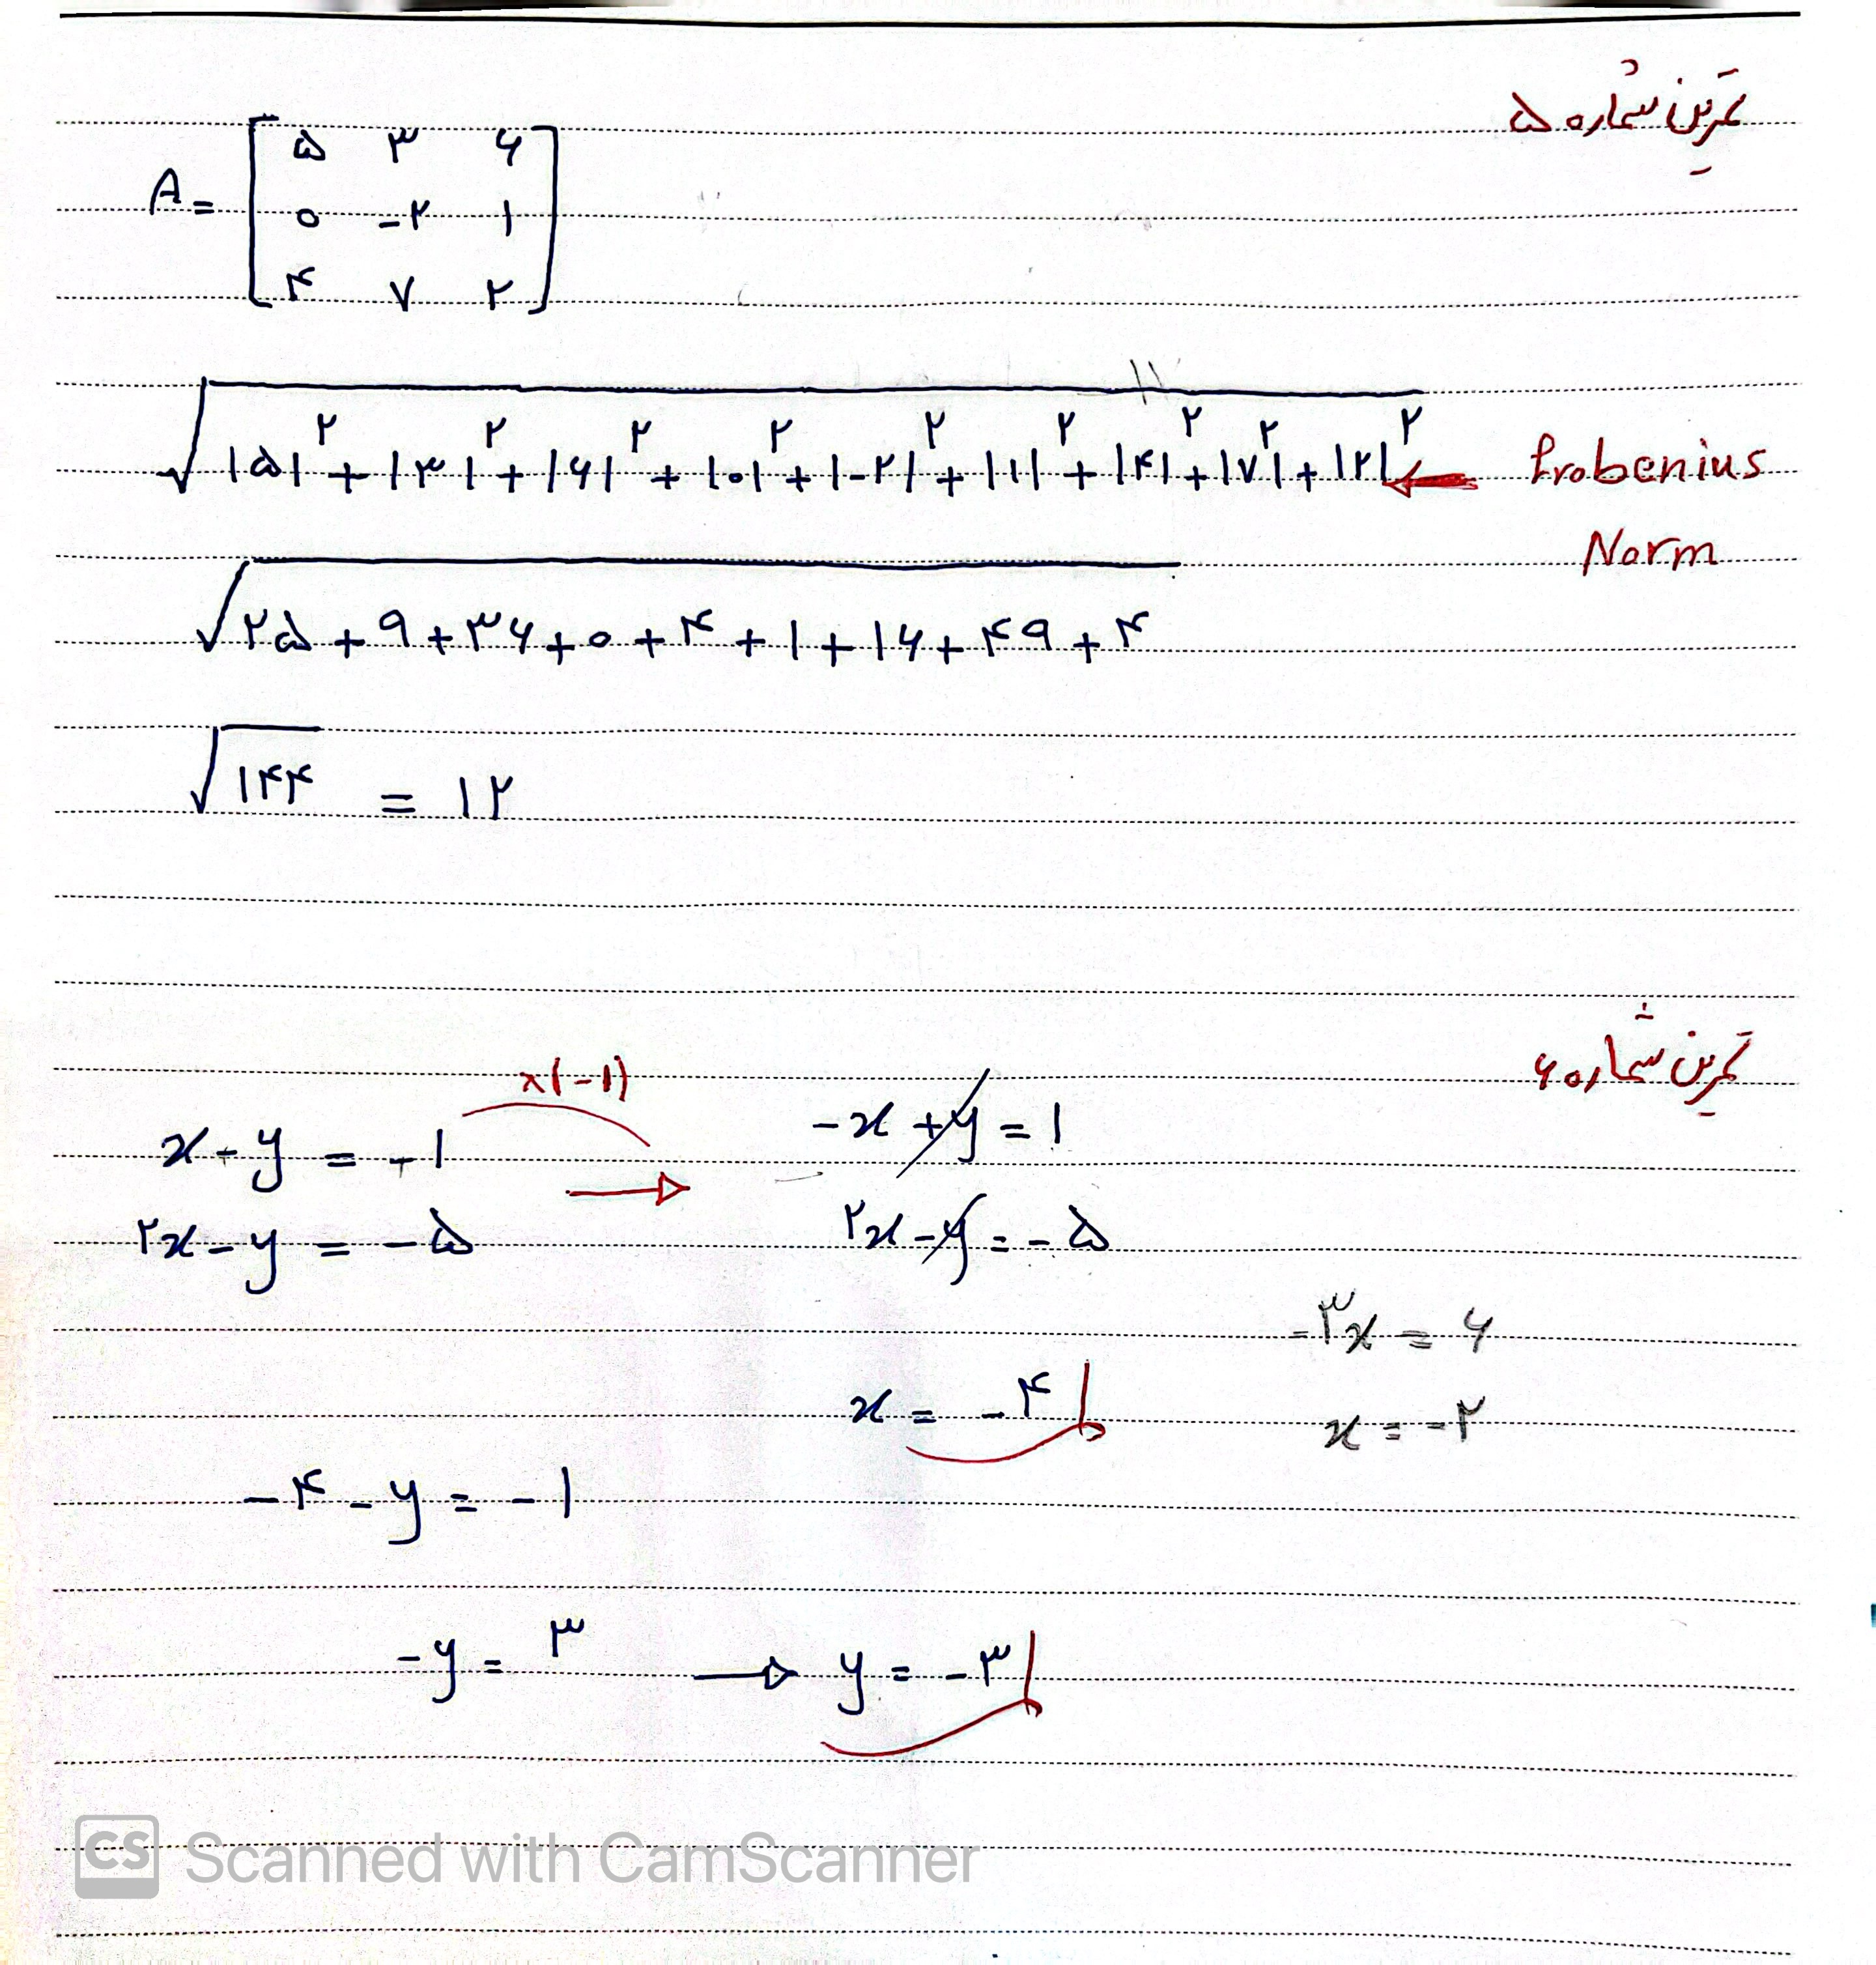 تمرین شماره ۵
A = [ ۵ ۳ ۶
۰ -۲ ۱
۴ ۷ ۲ ]
√|۵|² + |۳|² + |۶|² + |۰|² + |-۲|² + |۱|² + |۴|² + |۷|² + |۲|² ← frobenius
Norm
√۲۵ + ۹ + ۳۶ + ۰ + ۴ + ۱ + ۱۶ + ۴۹ + ۴
√۱۴۴ = ۱۲
تمرین شماره ۶
x(-۱)
x - y = -۱ → -x + y = ۱
۲x - y = -۵ ۲x - y = -۵
-۳x = ۶
x = -۴ x = -۲
-۴ - y = -۱
-y = ۳ → y = -۳
CS Scanned with CamScanner